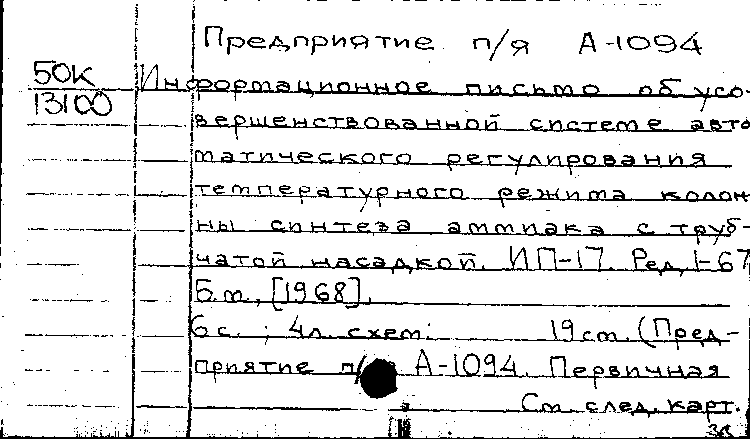 Предприятие п/я А-1094
50К
13100
Информационное письмо об усо-
вершенствованной системе авто
матического регулирования
температурного режима колон
ны синтеза аммиака с труб-
чатой насадкой. ИП-17. Ред. 1-67
Б.м., [1968].
6с.; 4л. схем. 19см. (Пред-
приятие п/я А-1094. Первичная
См. след. карт.